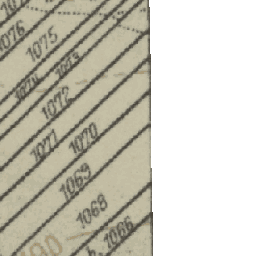 1076
1075
1074
1073
1072
1071
1070
1069
1068
1066